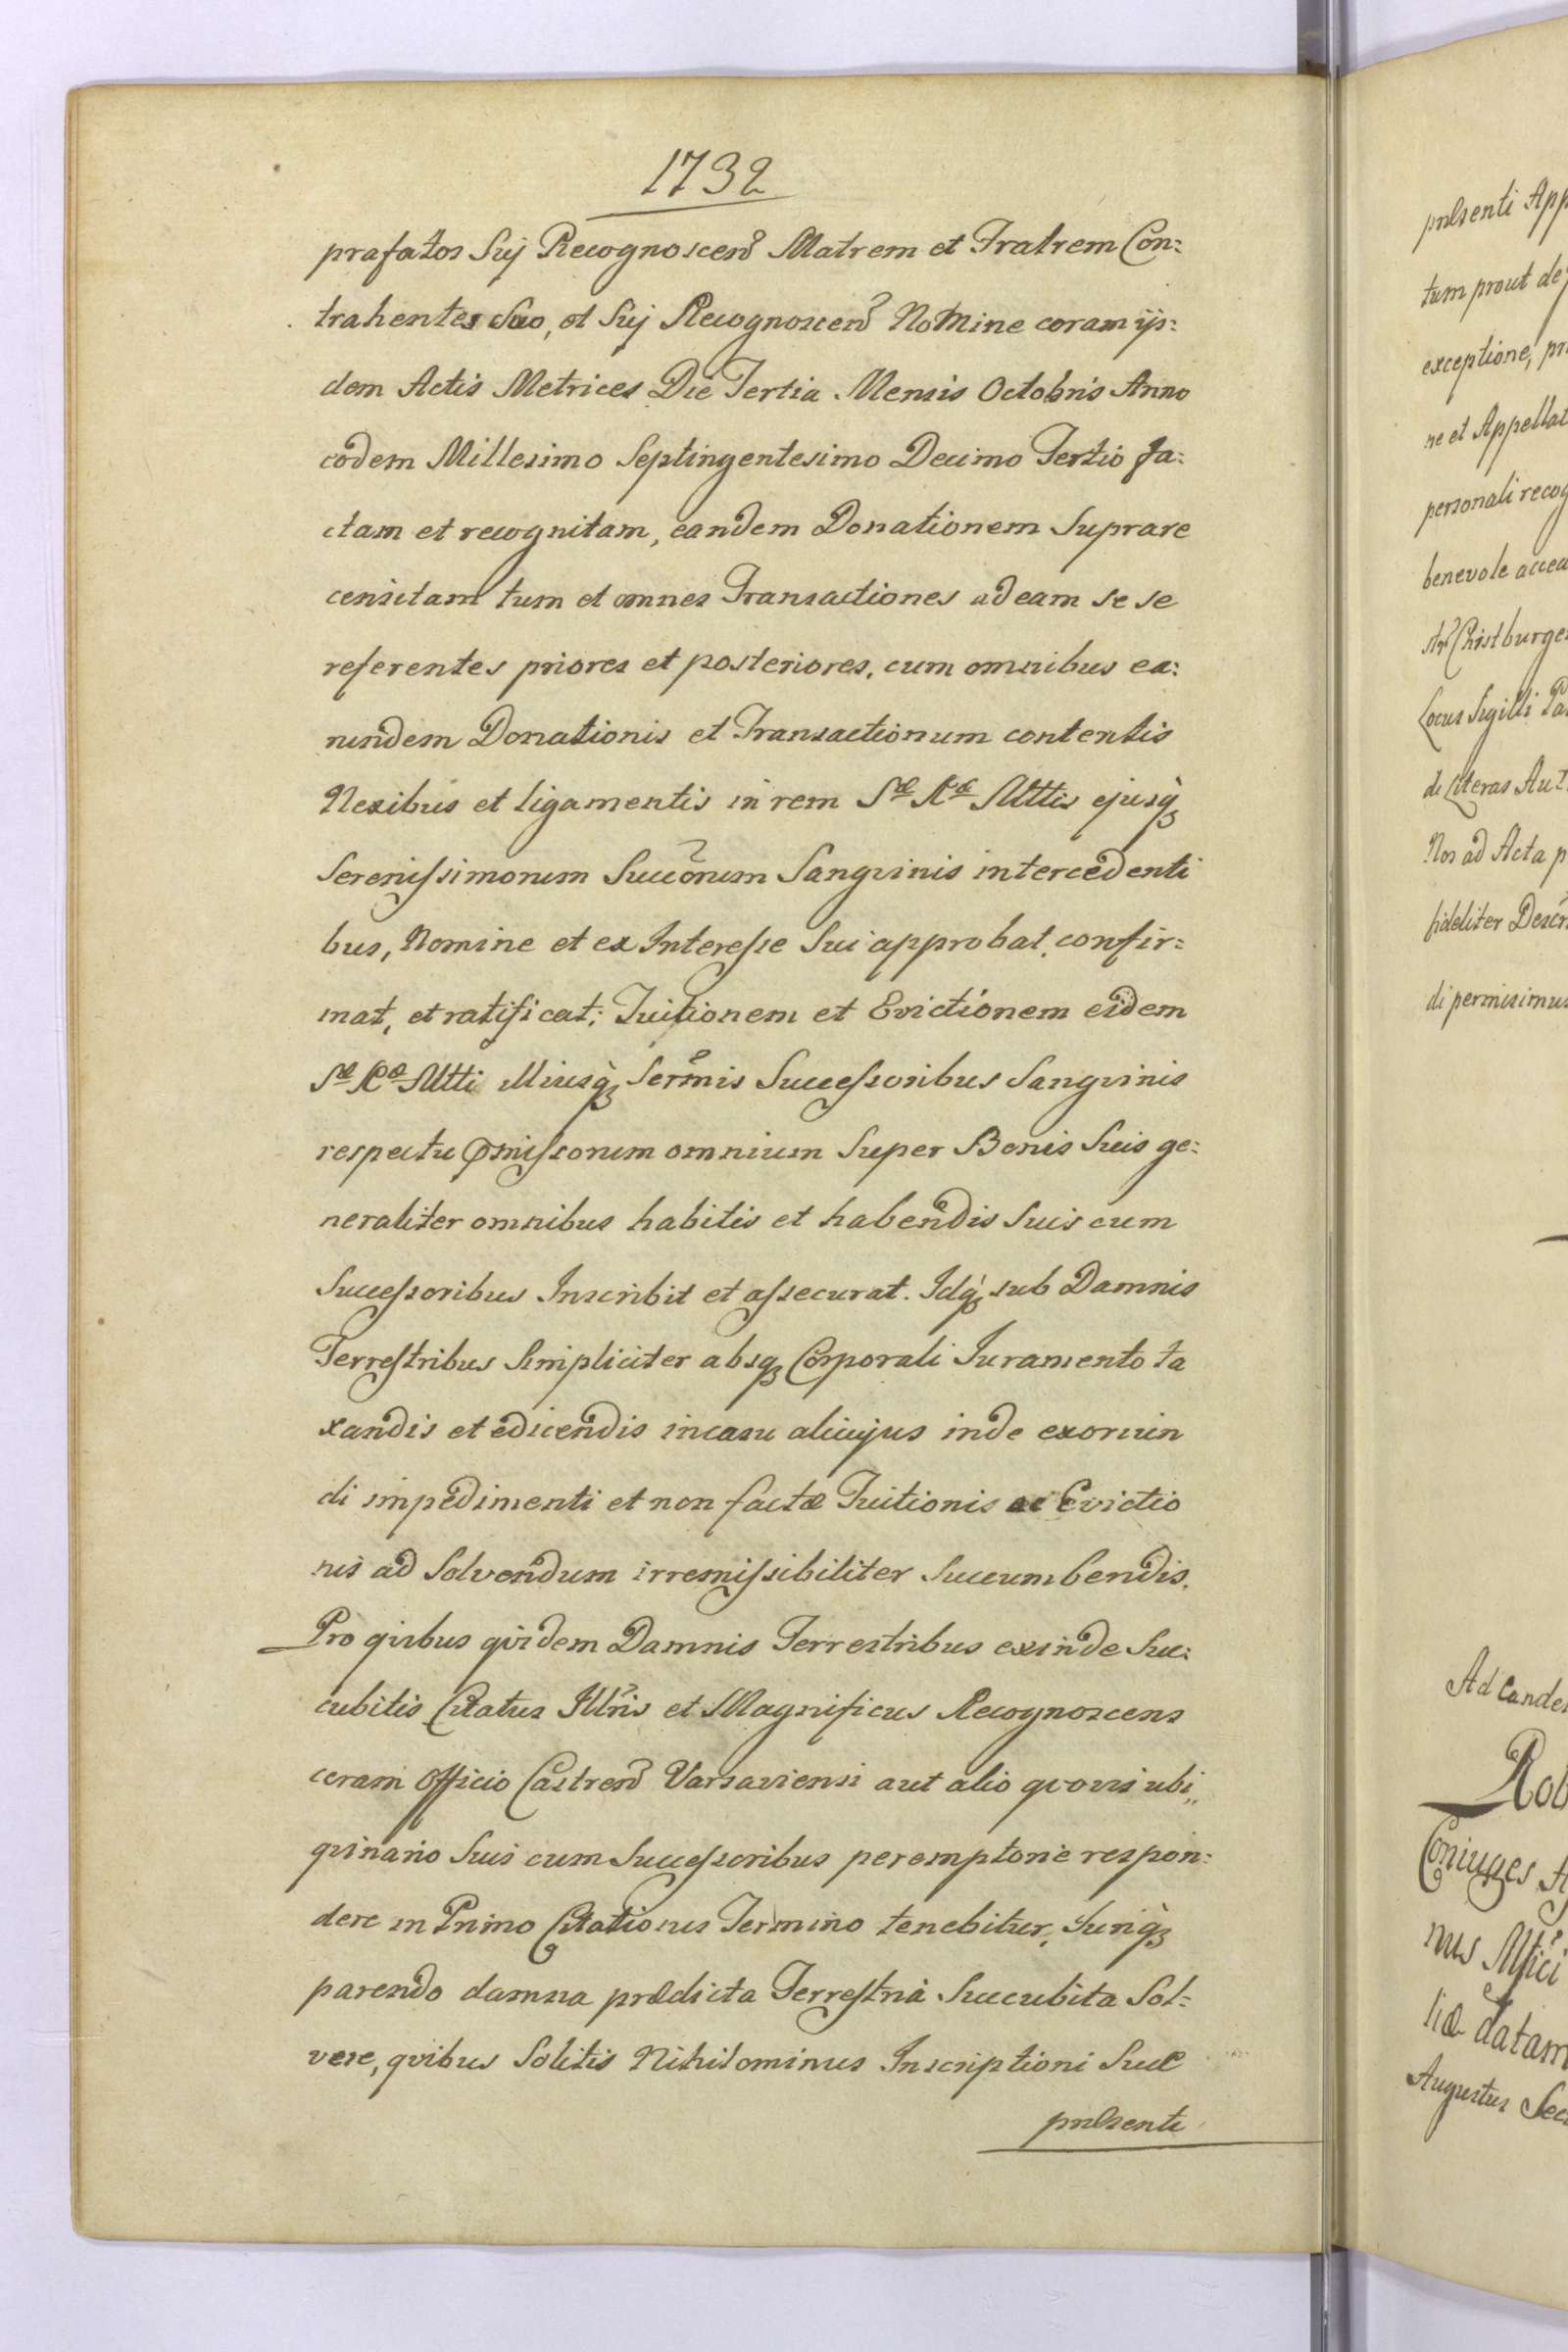 1732
præfatos Suj Recognoscen Matrem et Fratrem Con:
trahentes Suo, et Suj Recognoscen Nomine coram ijs:
dem Actis Metrices Die Tertia Mensis Octobris Anno
eodem Millesimo Septingentesimo Decimo Tertio fa:
ctam et recognitam, eandem Donationem Suprare
censitam tum et omnes Transactiones ad eam se se
referentes priores et posteriores, cum omnibus ea:
rundem Donationis et Transactionum contentis
Nexibus et ligamentis in rem Sæ Ræ Mttis ejusq;
Serenissimorum Succorum Sangvinis intercedenti
bus, Nomine et ex Interesse Sui approbat, confir:
mat, et ratificat; Tuitionem et Evictionem eidem
Sæ Ræ Mtti Illiusq; Sermis Successoribus Sangvinis
respectu pmissorum omnium Super Bonis Suis ge:
neraliter omnibus habitis et habendis Suis cum
Successoribus Inscribit et assecurat. Idq; sub Damnis
Terrestribus Simpliciter absq; Corporali Iuramento ta
xandis et edicendis in casu alicujus inde exoriun
di impedimenti et non factæ Tuitionis ac Evictio
nis ad Solvendum irremissibiliter Succumbendis.
Pro qvibus qvidem Damnis Terrestribus exinde Suc:
cubitis Citatus Illris et Magnificus Recognoscens
coram Officio Castren Varsaviensi aut alio qvovis ubi„
qvinario Suis cum Successoribus peremptorie respon:
dere in Primo Citationis Termino tenebitur, Juriq;
parendo damna prædicta Terrestria Succubita Sol:
vere, qvibus Solitis Nihilominus Inscriptioni Suæ
pnlsenti
pnlsenti App
tum prout de
exceptione, pr
ne et Appellat
personali recog
benevole accea
str Christburge
Locus Sigilli Pa
di Literas Aut
Nos ad Acta p
fideliter Descr
di permisimus
Ad Eande
Rob
Coniuges A
nus Mfici
liæ datam
Augustus Sec